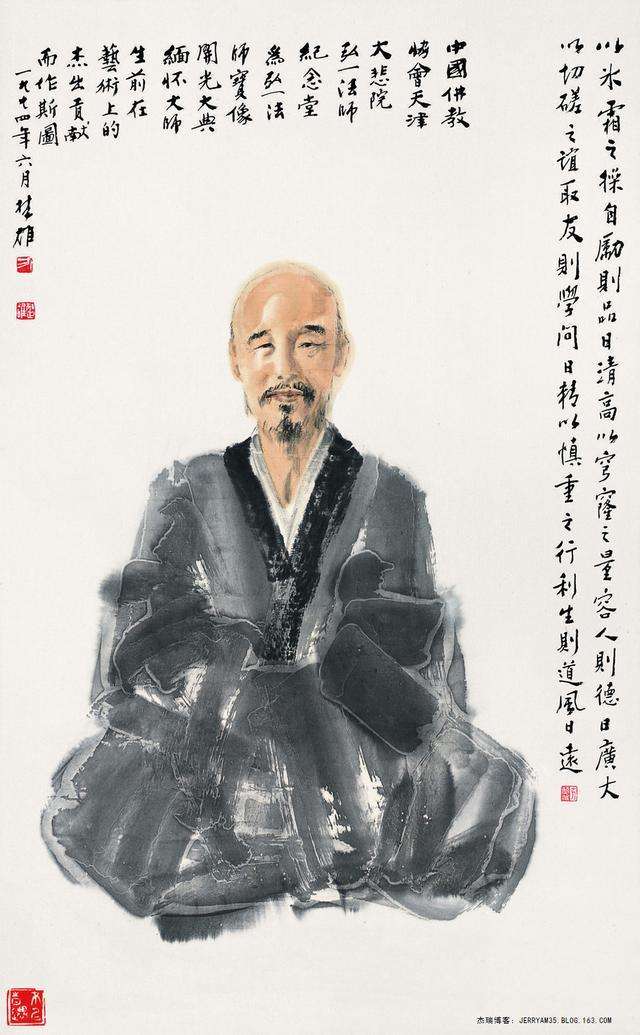 以氷霜之操自勵則品日清高以穹窿之量容人則德日廣大
以切磋之誼取友則學問日精以慎重之行利生則道風日遠
中國佛教
協會天津
大悲院
弘一法師
紀念堂
為弘一法
師寶像
開光大典
緬懷大師
生前在
藝術上的
杰出貢獻
而作斯圖
一九九四年六月 雄
杰瑞博客: JERRYAM35.BLOG.163.COM